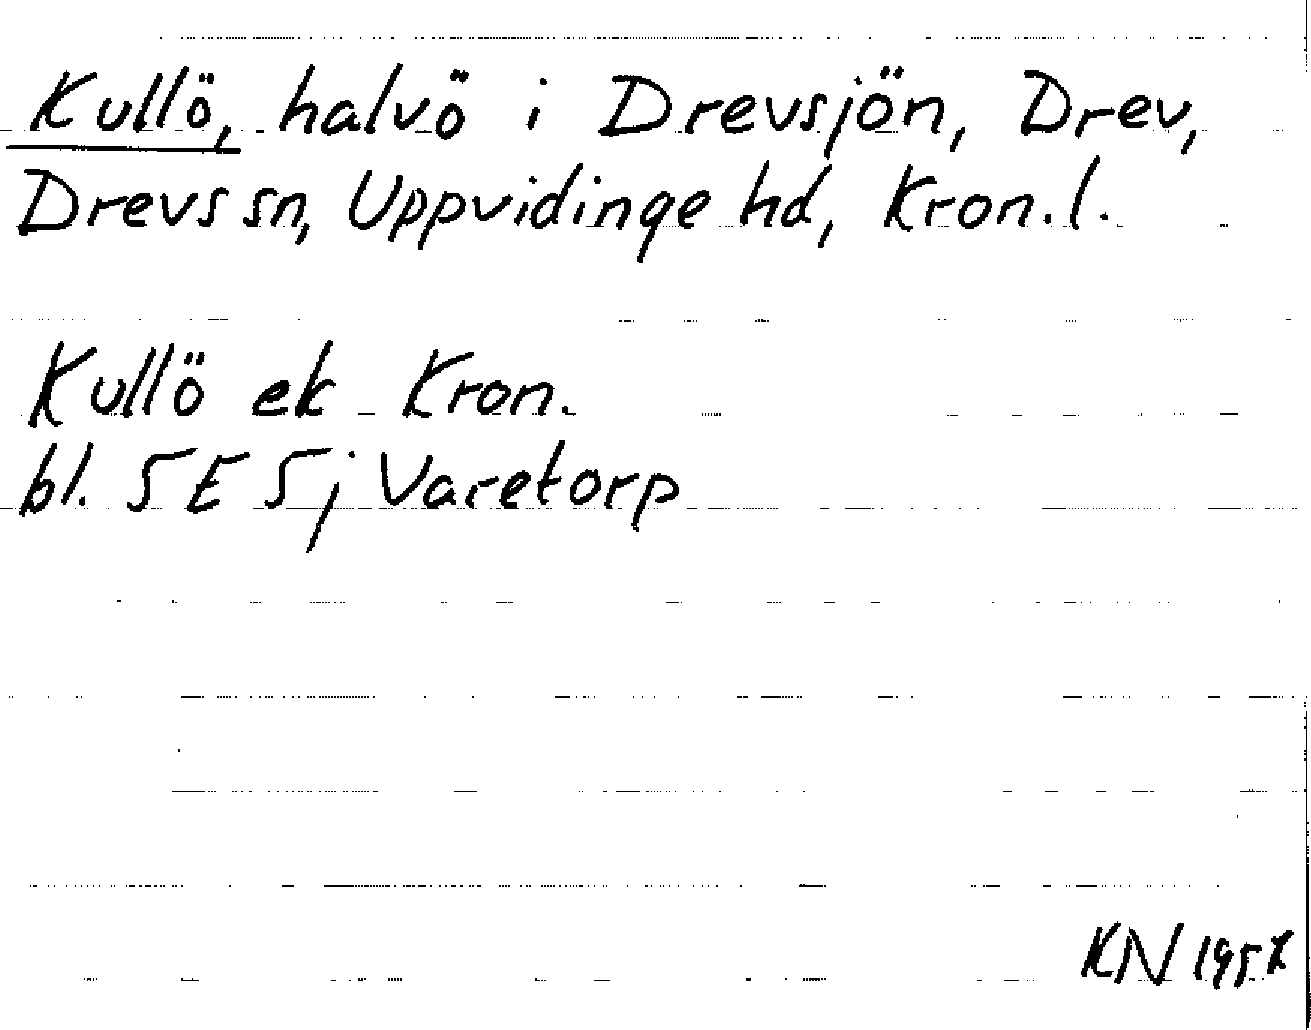 Kullö, halvö i Drevsjön, Drev,
Drevs sn, Uppvidinge hd, Kron. l.
Kullö ek Kron.
bl. 5 E 5 j Varetorp
KN